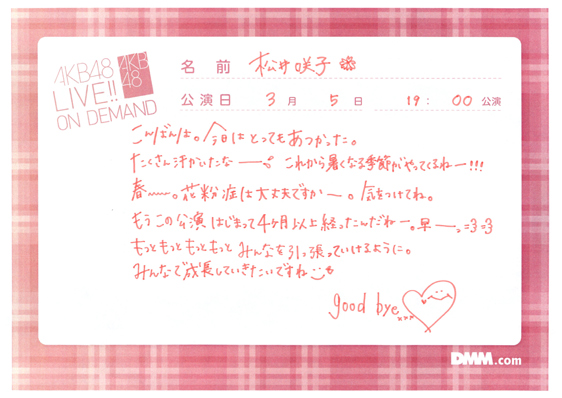 AKB48
LIVE!!
ON DEMAND
AKB
48
名前 松井咲子
公演日 3月 5日 19:00 公演
こんばんは。今日はとってもあつかった。
たくさん汗かいたなー。これから暑くなる季節がやってくるねー!!!
春〜〜。花粉症は大丈夫ですかー。気をつけてね。
もうこの公演はじまって4ヶ月以上経ったんだねー。早ーっ=3=3
もっともっともっともっとみんなを引っ張っていけるように。
みんなで成長していきたいですね
good bye
DMM.com